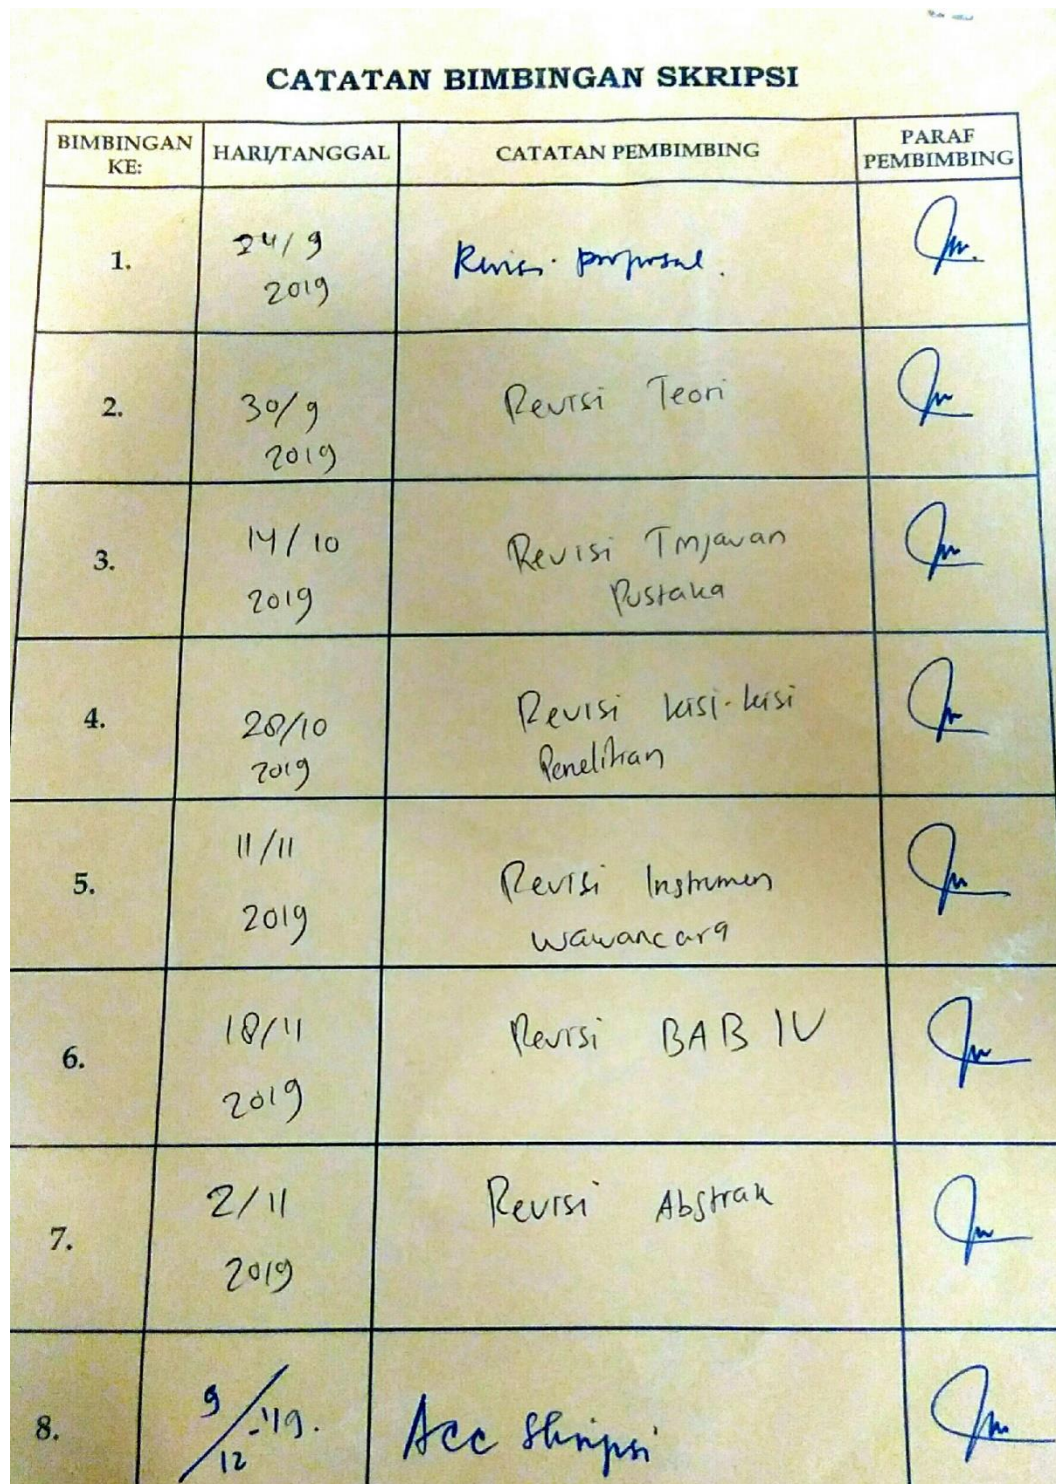 CATATAN BIMBINGAN SKRIPSI
BIMBINGAN KE: HARI/TANGGAL CATATAN PEMBIMBING PARAF PEMBIMBING
1. 24/9 2019 Revisi proposal.
2. 30/9 2019 Revisi Teori
3. 14/10 2019 Revisi Tinjauan
Pustaka
4. 28/10 2019 Revisi kisi-kisi
Penelitian
5. 11/11 2019 Revisi Instrumen
wawancara
6. 18/11 2019 Revisi BAB IV
7. 2/11 2019 Revisi Abstrak
8. 9/12-'19. Acc Skripsi